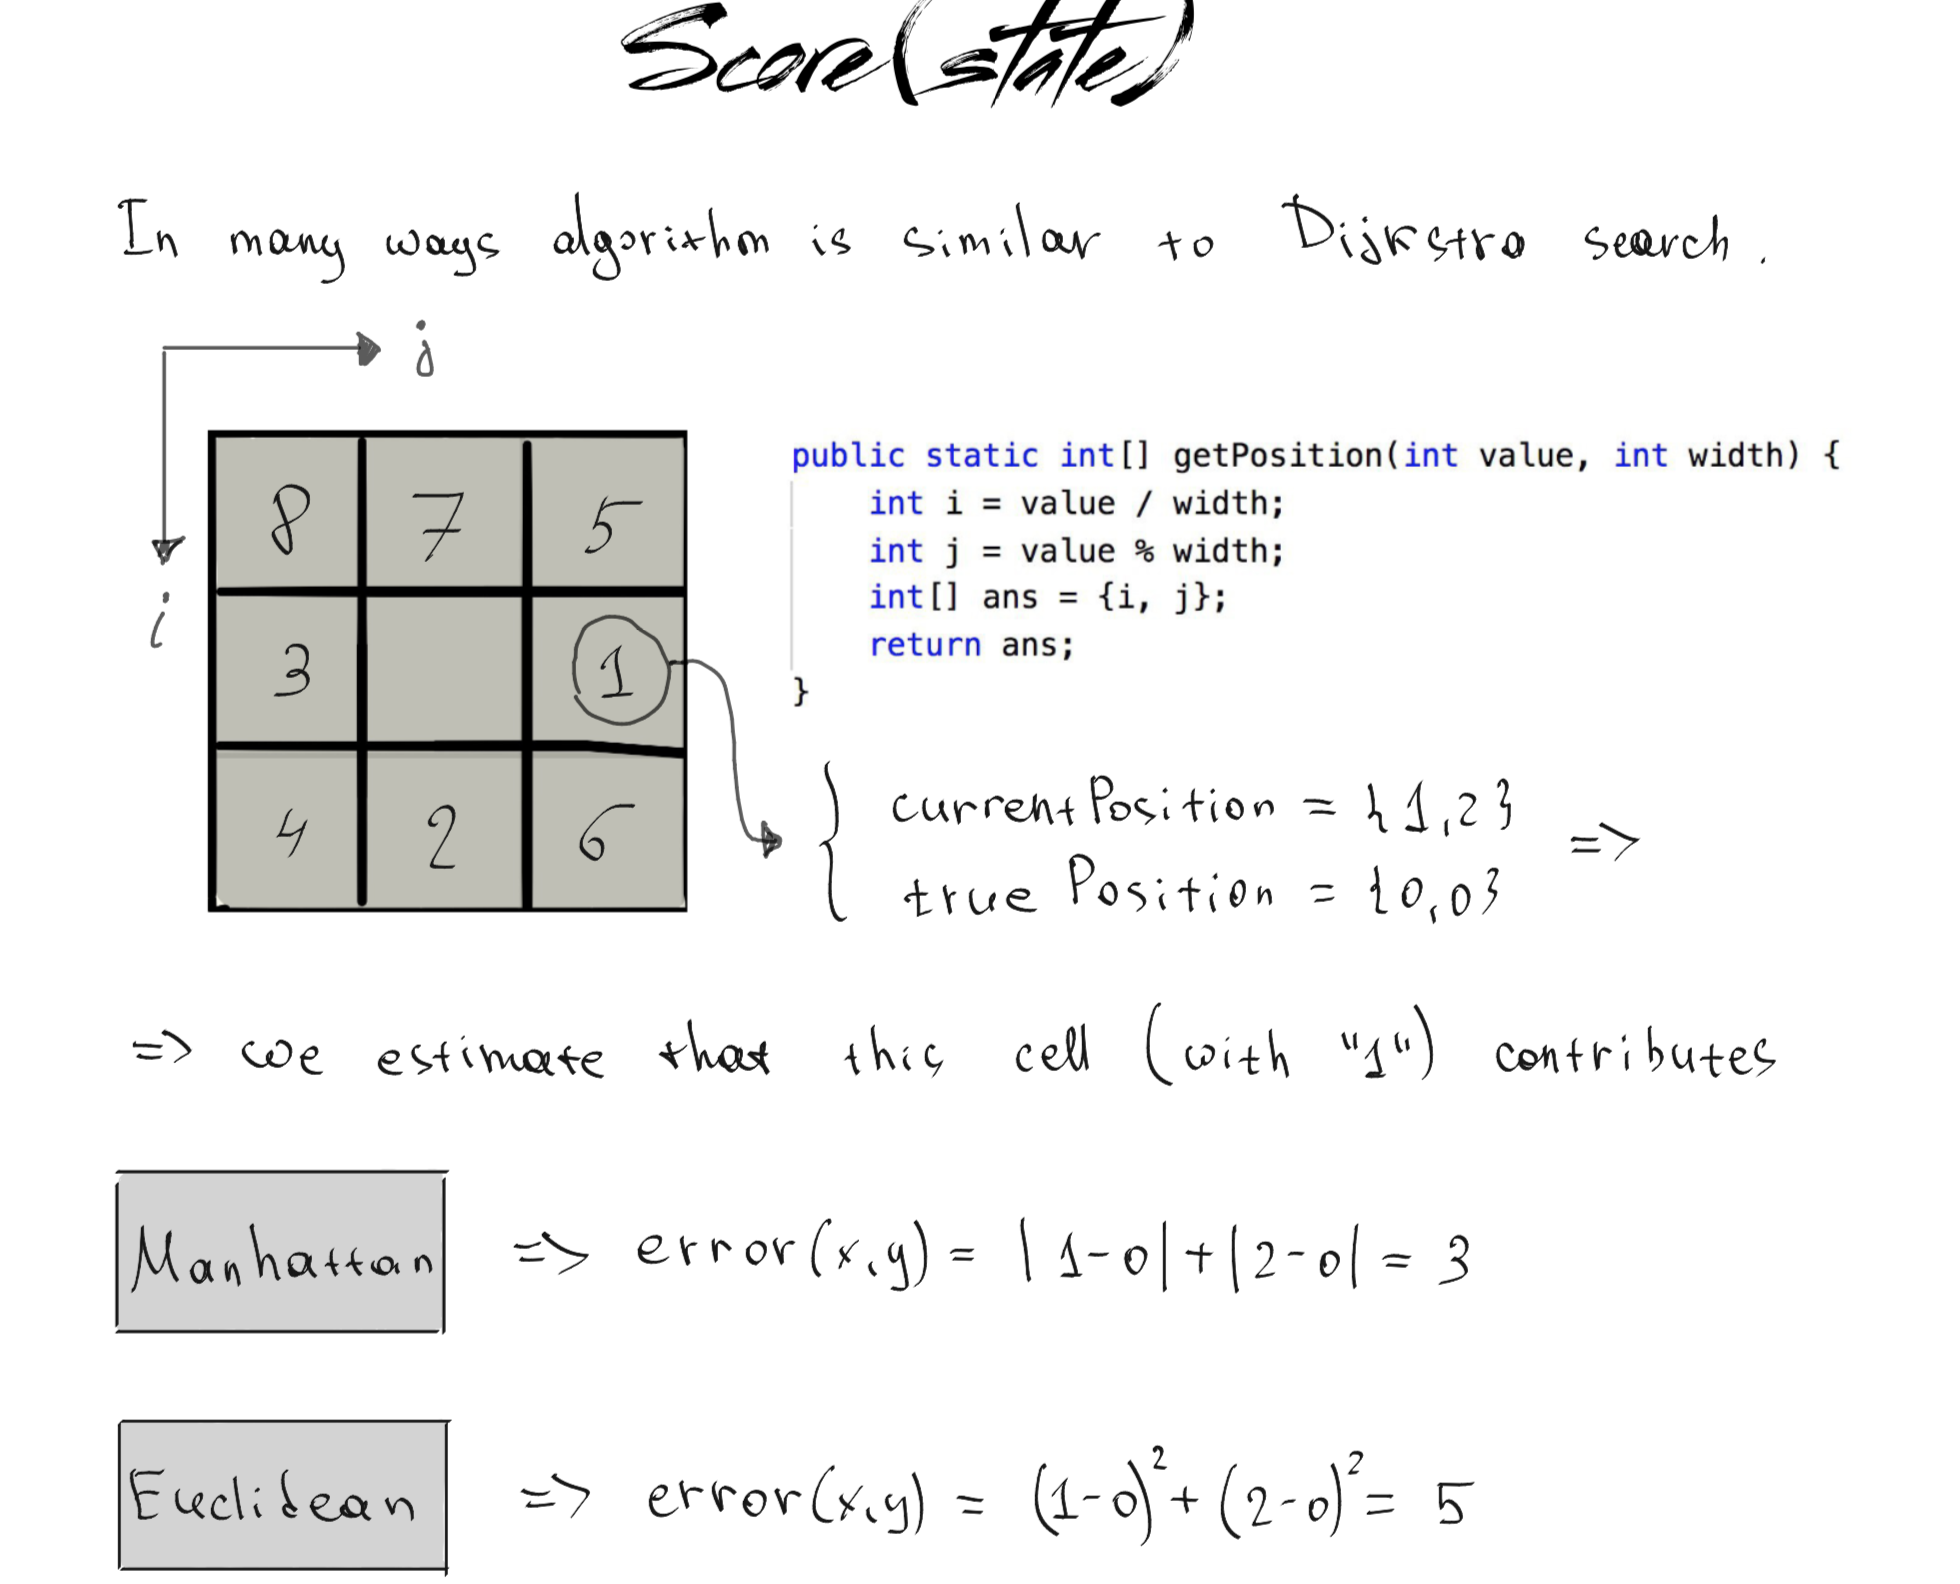 Score(state)
In many ways algorithm is similar to Dijkstra search.
j
i
8 7 5
3 1
4 2 6
public static int[] getPosition(int value, int width) {
int i = value / width;
int j = value % width;
int[] ans = {i, j};
return ans;
}
{ currentPosition = {1,2}
true Position = {0,0} =>
=> we estimate that this cell (with "1") contributes
Manhattan => error(x,y) = |1-0|+|2-0| = 3
Euclidean => error(x,y) = (1-0)²+(2-0)² = 5